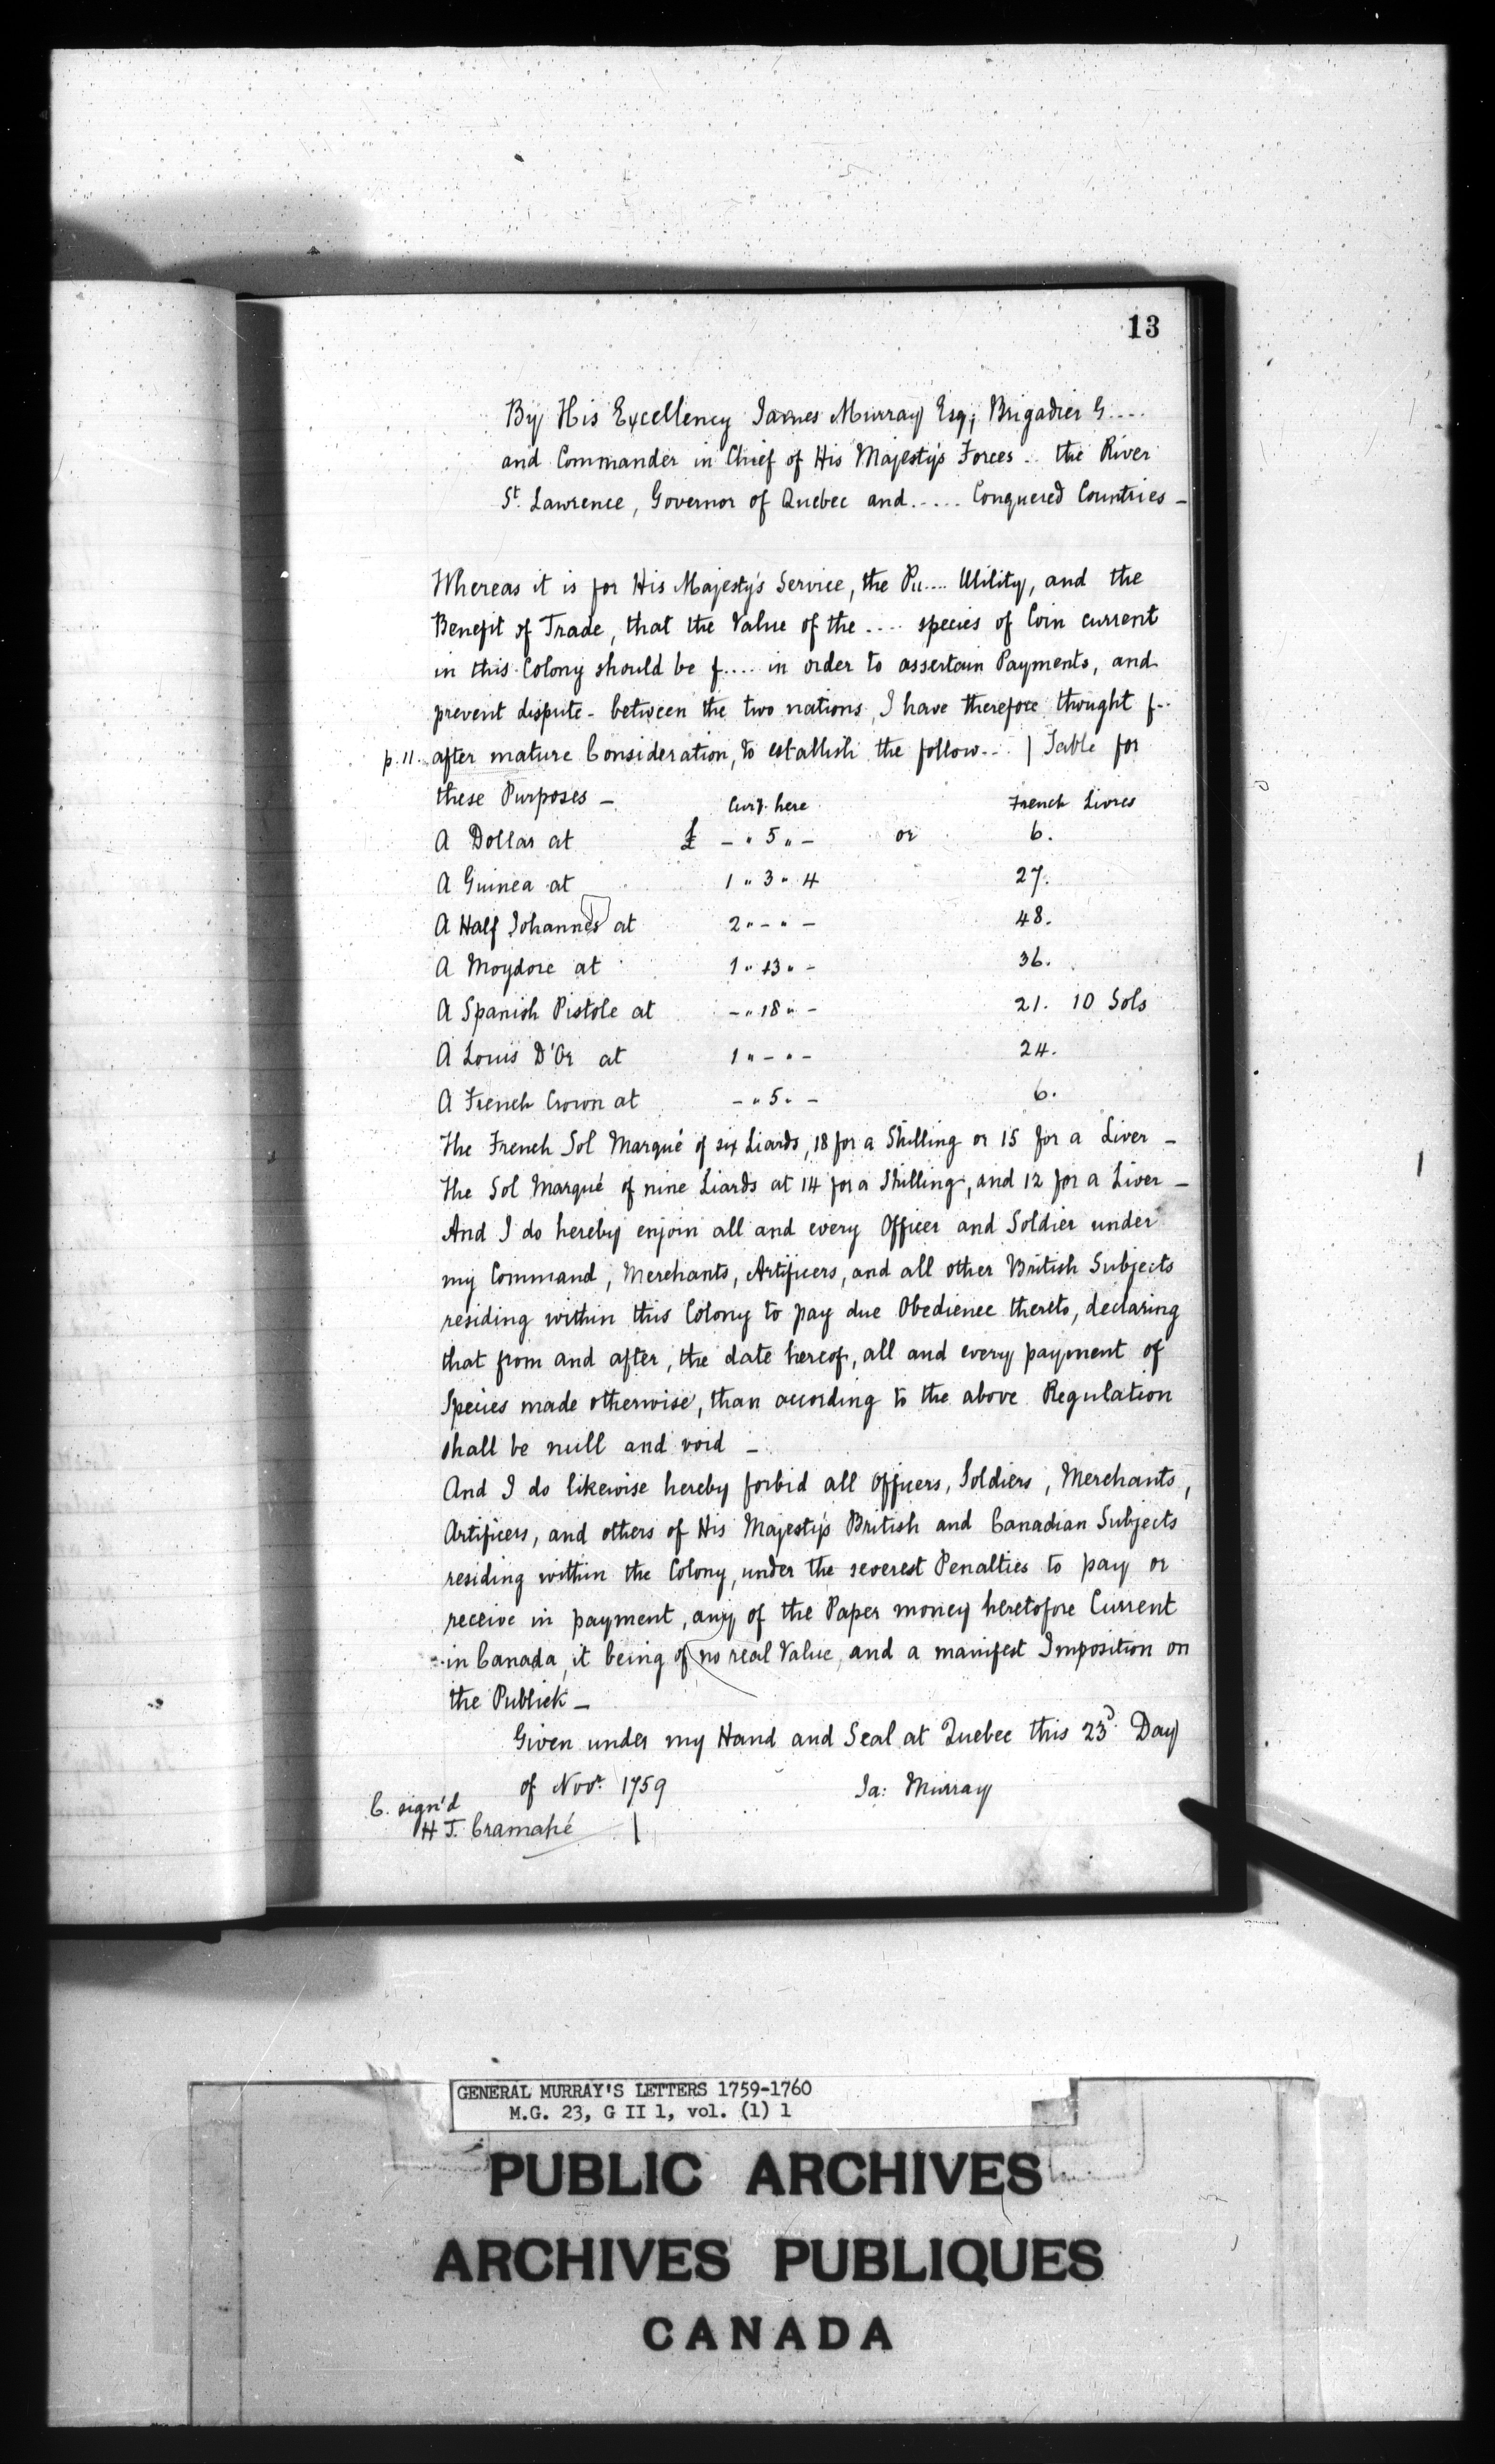 13
By His Excellency James Murray Esq; Brigadier G....
and Commander in Chief of His Majesty's Forces .. the River
St. Lawrence, Governor of Quebec and ..... Conquered Countries -
Whereas it is for His Majesty's Service, the Pu.... Utility, and the
Benefit of Trade, that the Value of the .... species of Coin current
in this Colony should be f.... in order to assertain Payments, and
prevent dispute - between the two nations, I have therefore thought f..
p. 11. after mature Consideration, to establish the follow... | Table for
these Purposes - Curr.y here French Livres
A Dollar at £ - " 5 " - or 6.
A Guinea at 1 " 3 " 4 27.
A Half Johannes at 2 " - " - 48.
A Moydore at 1 " 13 " - 36.
A Spanish Pistole at - " 18 " - 21. 10 Sols
A Louis D'Or at 1 " - " - 24.
A French Crown at - " 5 " - 6.
The French Sol Marqué of six Liards, 18 for a Shilling or 15 for a Liver -
The Sol Marqué of nine Liards at 14 for a Shilling, and 12 for a Liver -
And I do hereby enjoin all and every Officer and Soldier under
my Command, Merchants, Artificers, and all other British Subjects
residing within this Colony to pay due Obedience thereto, declaring
that from and after, the date hereof, all and every payment of
Species made otherwise, than according to the above Regulation
shall be null and void -
And I do likewise hereby forbid all Officers, Soldiers, Merchants,
Artificers, and others of His Majesty's British and Canadian Subjects
residing within the Colony, under the severest Penalties to pay or
receive in payment, any of the Paper money heretofore Current
in Canada, it being of no real Value, and a manifest Imposition on
the Publick -
Given under my Hand and Seal at Quebec this 23d. Day
of Novr. 1759 Ja: Murray
C. sign'd
H T. Cramahé
GENERAL MURRAY'S LETTERS 1759-1760
M.G. 23, G II 1, vol. (1) 1
PUBLIC ARCHIVES
ARCHIVES PUBLIQUES
CANADA